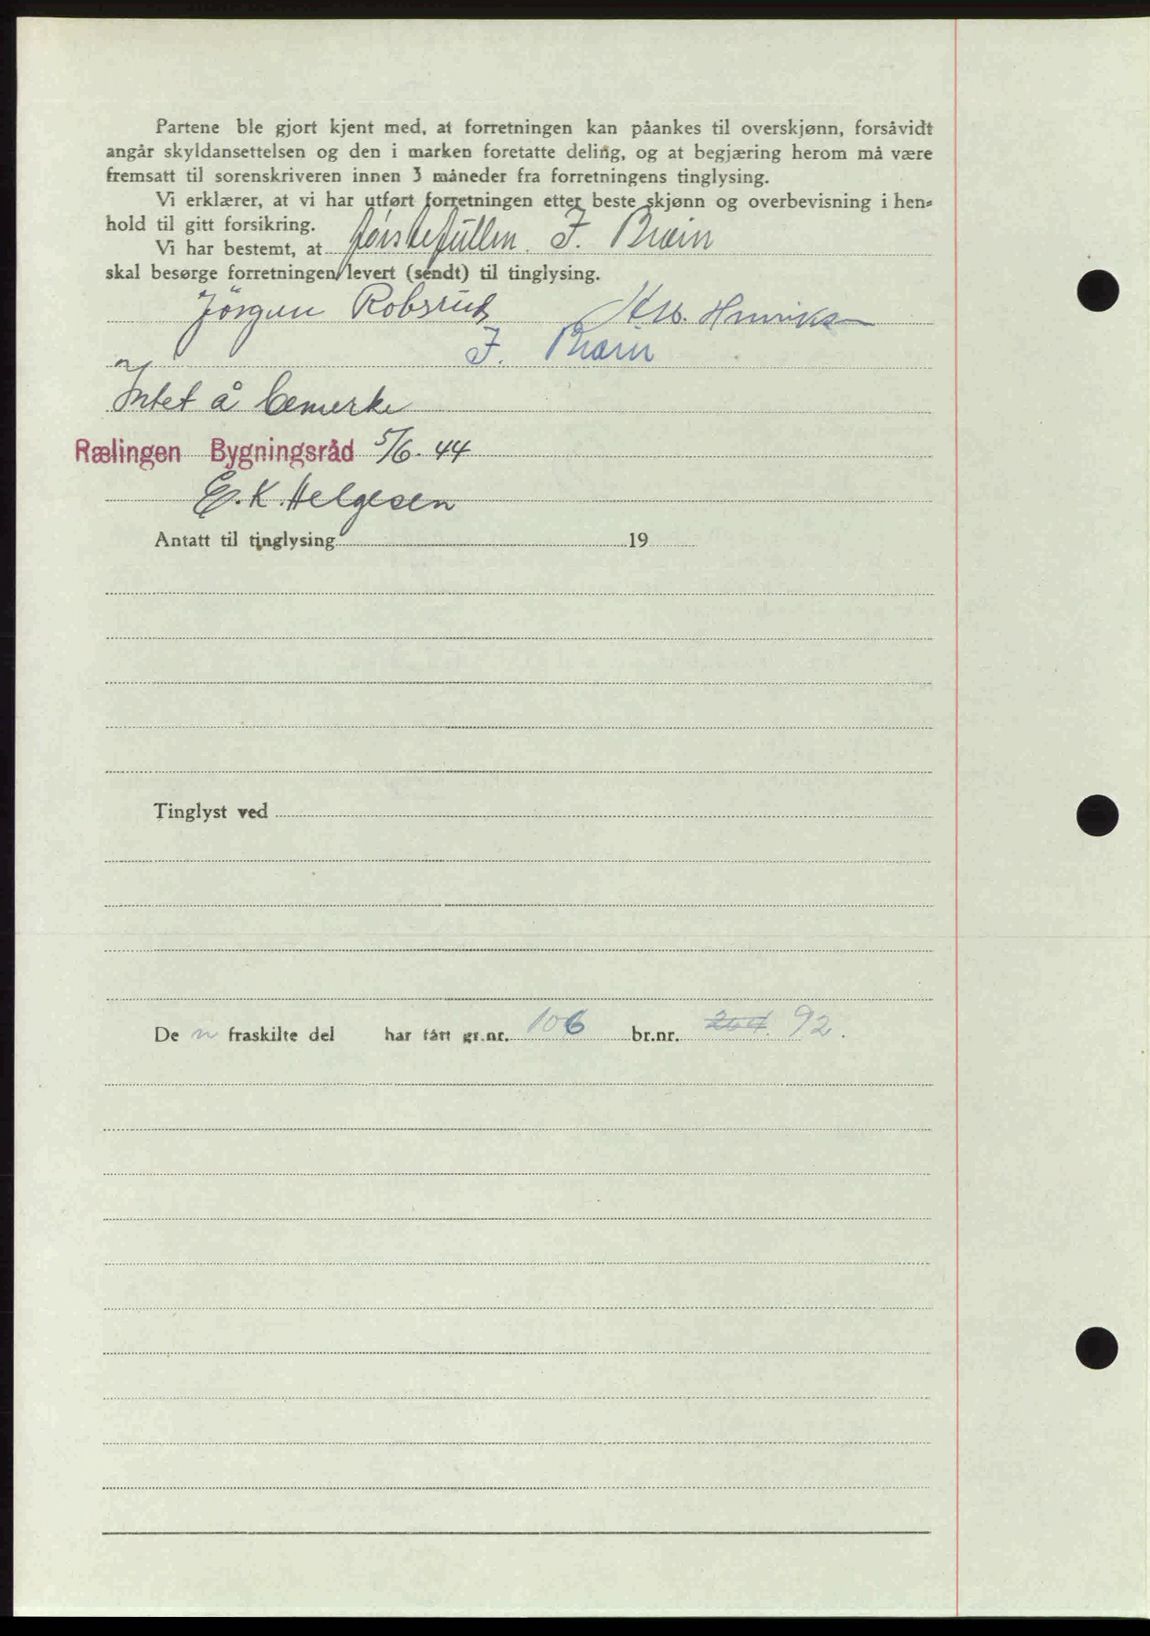 Partene ble gjort kjent med, at forretningen kan påankes til overskjønn, forsåvidt
angår skyldansettelsen og den i marken foretatte deling, og at begjæring herom må være
fremsatt til sorenskriveren innen 3 måneder fra forretningens tinglysing.
Vi erklærer, at vi har utført forretningen etter beste skjønn og overbevisning i hen-
hold til gitt forsikring.
Vi har bestemt, at F. Bræin
skal besørge forretningen levert (sendt) til tinglysing.
Jörgen Robsrud
F. Bræin
Intet å bemerke
Rælingen Bygningsråd 5/6-44
E.K. Helgesen
Antatt til tinglysing 19
Tinglyst ved
De n fraskilte del har fått gr.nr. 106 br.nr. 92.